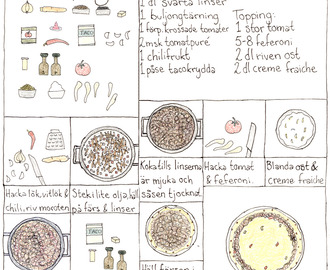 1 dl svarta linser
1 buljongtärning
1 förp. krossade tomater
2 msk tomatpuré
1 chilifrukt
1 påse tacokrydda
Topping:
1 stor tomat
5-8 feferoni
2 dl riven ost
2 dl creme fraiche
TACO
Hacka lök, vitlök &
chili, riv moroten
Stek i lite olja, häll
på färs & linser
Koka tills linserna
är mjuka och
såsen tjocknat
Hacka tomat
& feferoni.
Blanda ost &
creme fraiche
TACO
Häll färsen i